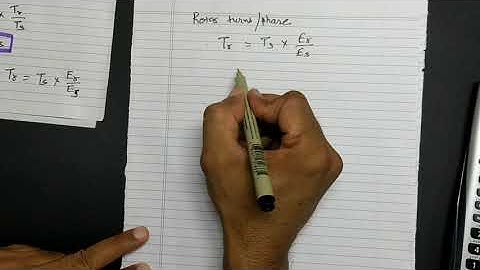 × Tr/Ts
s
Tr = Ts × Er/Es
Rotor turns/phase
Tr = Ts × Er/Es
7
4
1